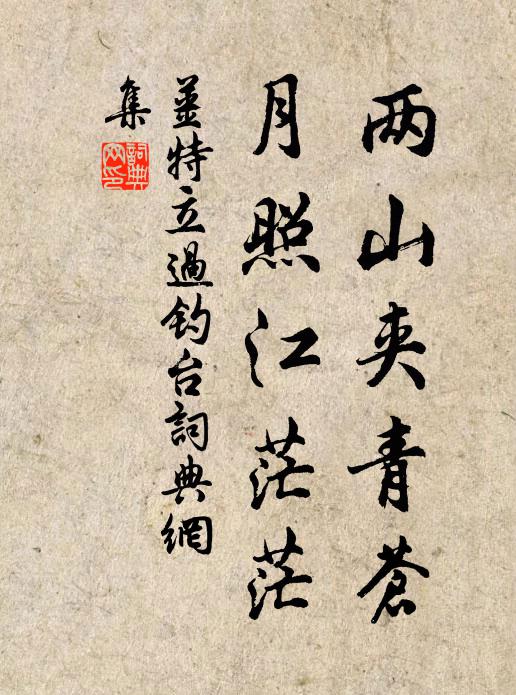 两山夹青苍
月照江茫茫
姜特立過钓台詞典網
集
詞典
网印